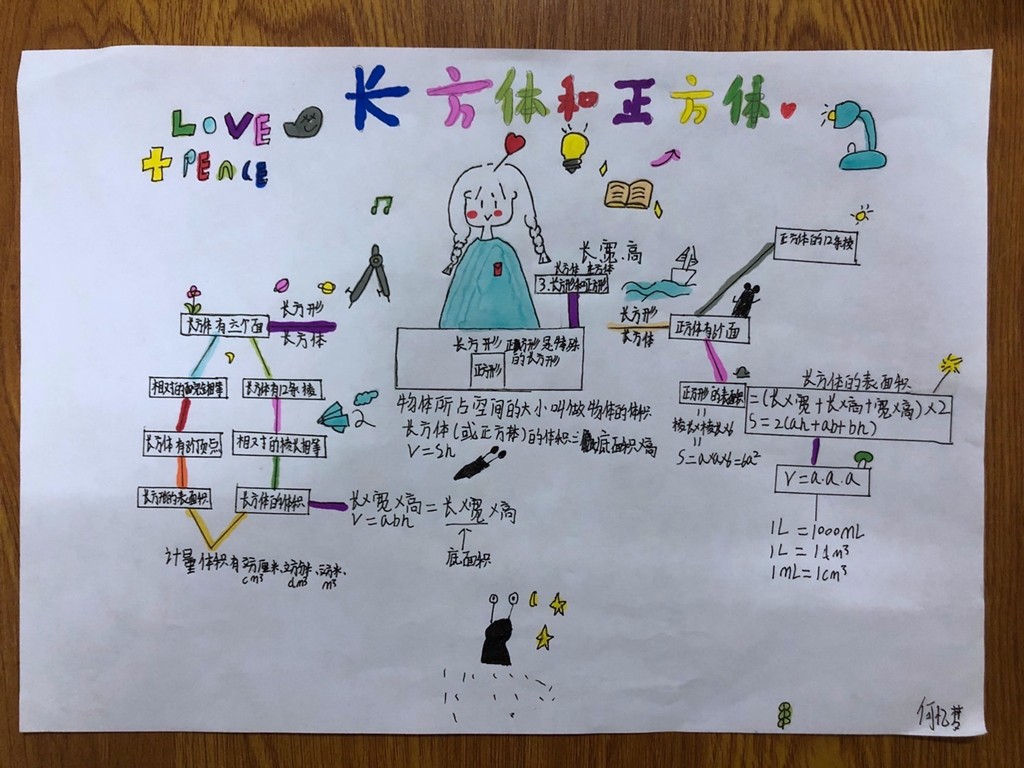 长方体和正方体
LOVE
+ PEACE
长.宽.高
长方体 正方体
3.长方形和正方形
正方体的12条棱
长方形
长方体有六个面
长方体
长方形
长方体
正方体有6个面
长方形 正方形是特殊
的长方形
正方形
相对的面完全相等
长方体有12条棱
长方体有8个顶点
相对的棱长相等
长方形的表面积
长方体的体积
2
物体所占空间的大小叫做物体的体积
长方体(或正方体)的体积=底面积×高
V=Sh
长×宽×高=长×宽×高
V=abh
底面积
计量体积有立方厘米.立方分米.立方米.
cm³ dm³ m³
正方形的表面积
=
棱长×棱长×6
=
S=a×a×6=6a²
长方体的表面积
=(长×宽+长×高+宽×高)×2
S=2(ah+ab+bh)
V=a.a.a
1L=1000mL
1L=1dm³
1mL=1cm³
何忆梦